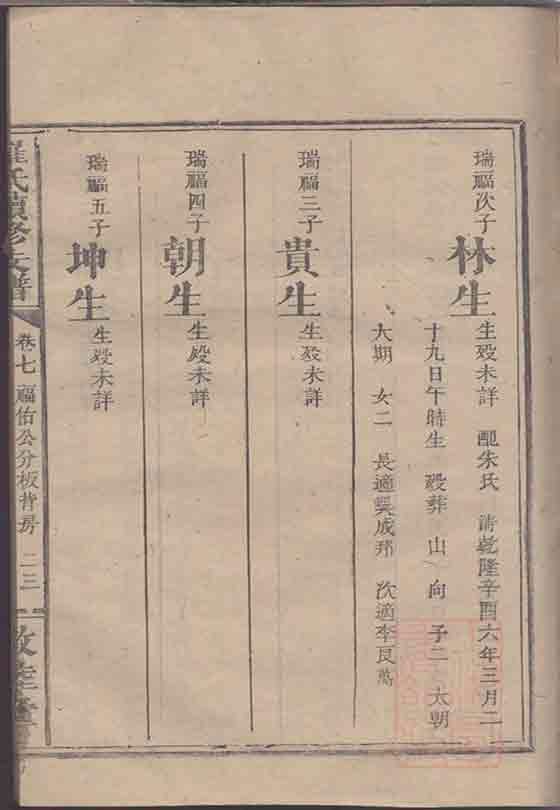 瑞福次子
林生
生歿未詳 配朱氏 清乾隆辛酉六年三月二
十九日午時生 歿葬 山 向 子二 大朝
大期 女二 長適吳成邦 次適李良萬
瑞福三子
貴生
生歿未詳
瑞福四子
朝生
生歿未詳
瑞福五子
坤生
生歿未詳
羅氏續修支譜
卷七 福佑公分板背房 二三
敦